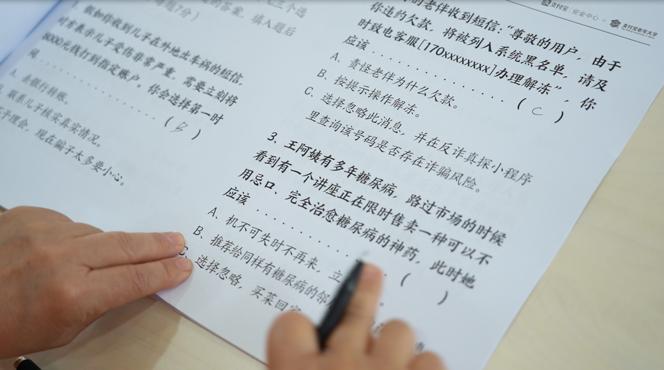 支付宝 安全中心 支付宝老年大学
的答案，填入题后
1. 假如你收到儿子在外地出车祸的短信，
对方表示儿子受伤非常严重，需要立刻将
8000元钱打到指定账户。你会选择第一时
间 ( B )
去银行转账。
联系儿子核实真实情况。
不理会，现在骗子太多要小心。
的老伴收到短信：“尊敬的用户，由于
你违约欠款，将被列入系统黑名单，请及
时致电客服[170xxxxxxxx]办理解冻”，你
应该 ( C )
A. 责怪老伴为什么欠款。
B. 按提示操作解冻。
C. 选择忽略此消息，并在反诈真探小程序
里查询该号码是否存在诈骗风险。
3. 王阿姨有多年糖尿病，路过市场的时候
看到有一个讲座正在限时售卖一种可以不
用忌口、完全治愈糖尿病的神药，此时她
应该 ( )
A. 机不可失时不再来，立
B. 推荐给同样有糖尿病的邻
C. 选择忽略，买菜回家